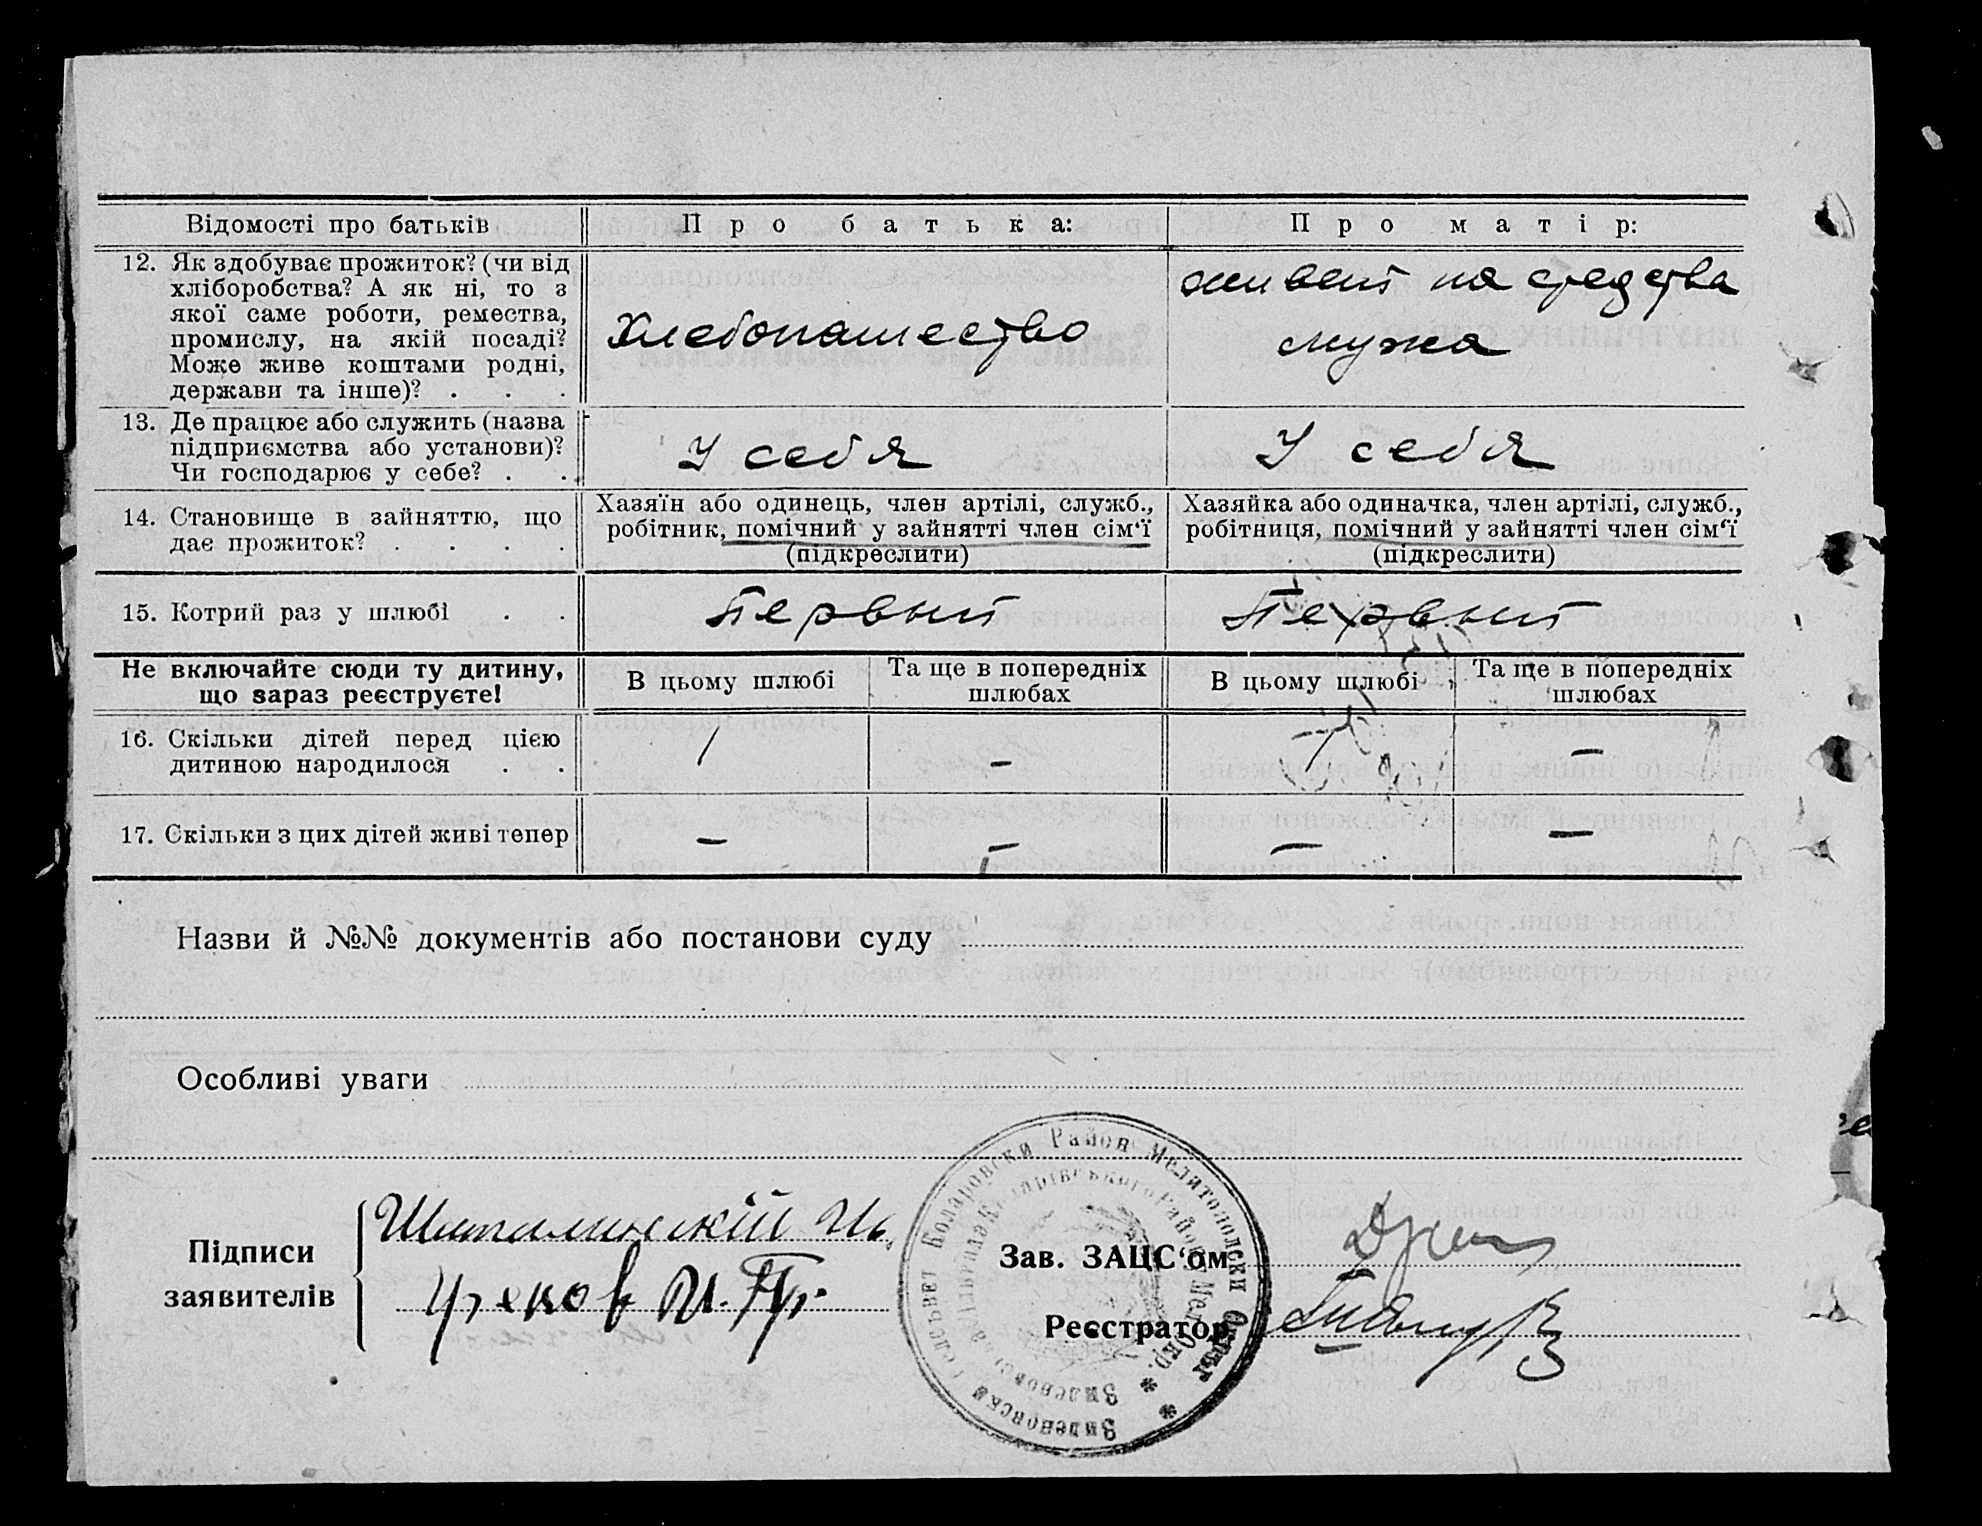 Відомості про батьків
Про батька:
Про матір:
12. Як здобуває прожиток? (чи від
хліборобства? А як ні, то з
якої саме роботи, ремества,
промислу, на якій посаді?
Може живе коштами родні,
держави та інше)? . . .
Хлебопашество
живет на средства
мужа
13. Де працює або служить (назва
підприємства або установи)?
Чи господарює у себе? . .
У себя
У себя
14. Становище в зайняттю, що
дає прожиток? . . . .
Хазяїн або одинець, член артілі, служб.,
робітник, помічний у зайнятті член сім'ї
(підкреслити)
Хазяйка або одиначка, член артілі, служб.,
робітниця, помічний у зайнятті член сім'ї
(підкреслити)
15. Котрий раз у шлюбі . .
Первый
Первый
Не включайте сюди ту дитину,
що зараз реєструєте!
В цьому шлюбі
Та ще в попередніх
шлюбах
В цьому шлюбі
Та ще в попередніх
шлюбах
16. Скільки дітей перед цією
дитиною народилося . .
1
—
1
—
17. Скільки з цих дітей живі тепер
—
—
—
—
Назви й №№ документів або постанови суду
Особливі уваги
Підписи
заявителів
Шаталинскій И.
Зав. ЗАЦС'ом
Реєстратор
Район Мелитополски Округ